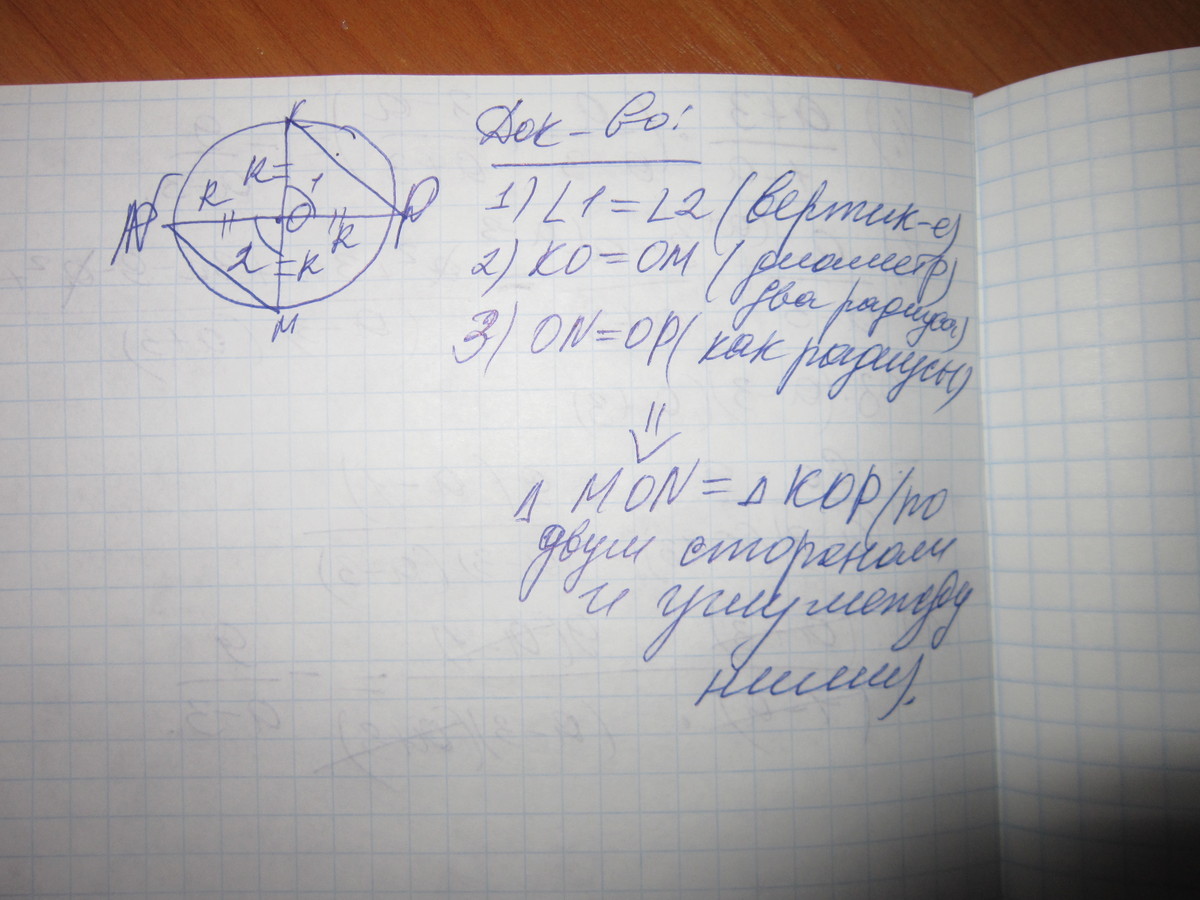 K
R
1
N
R
O
R
P
2
R
M
Док-во:
1) ∠1=∠2 (вертик-е)
2) KO=OM (диаметр
два радиуса)
3) ON=OP (как радиусы)
⇓
△ MON = △ KOP (по
двум сторонам
и углу между
ними).